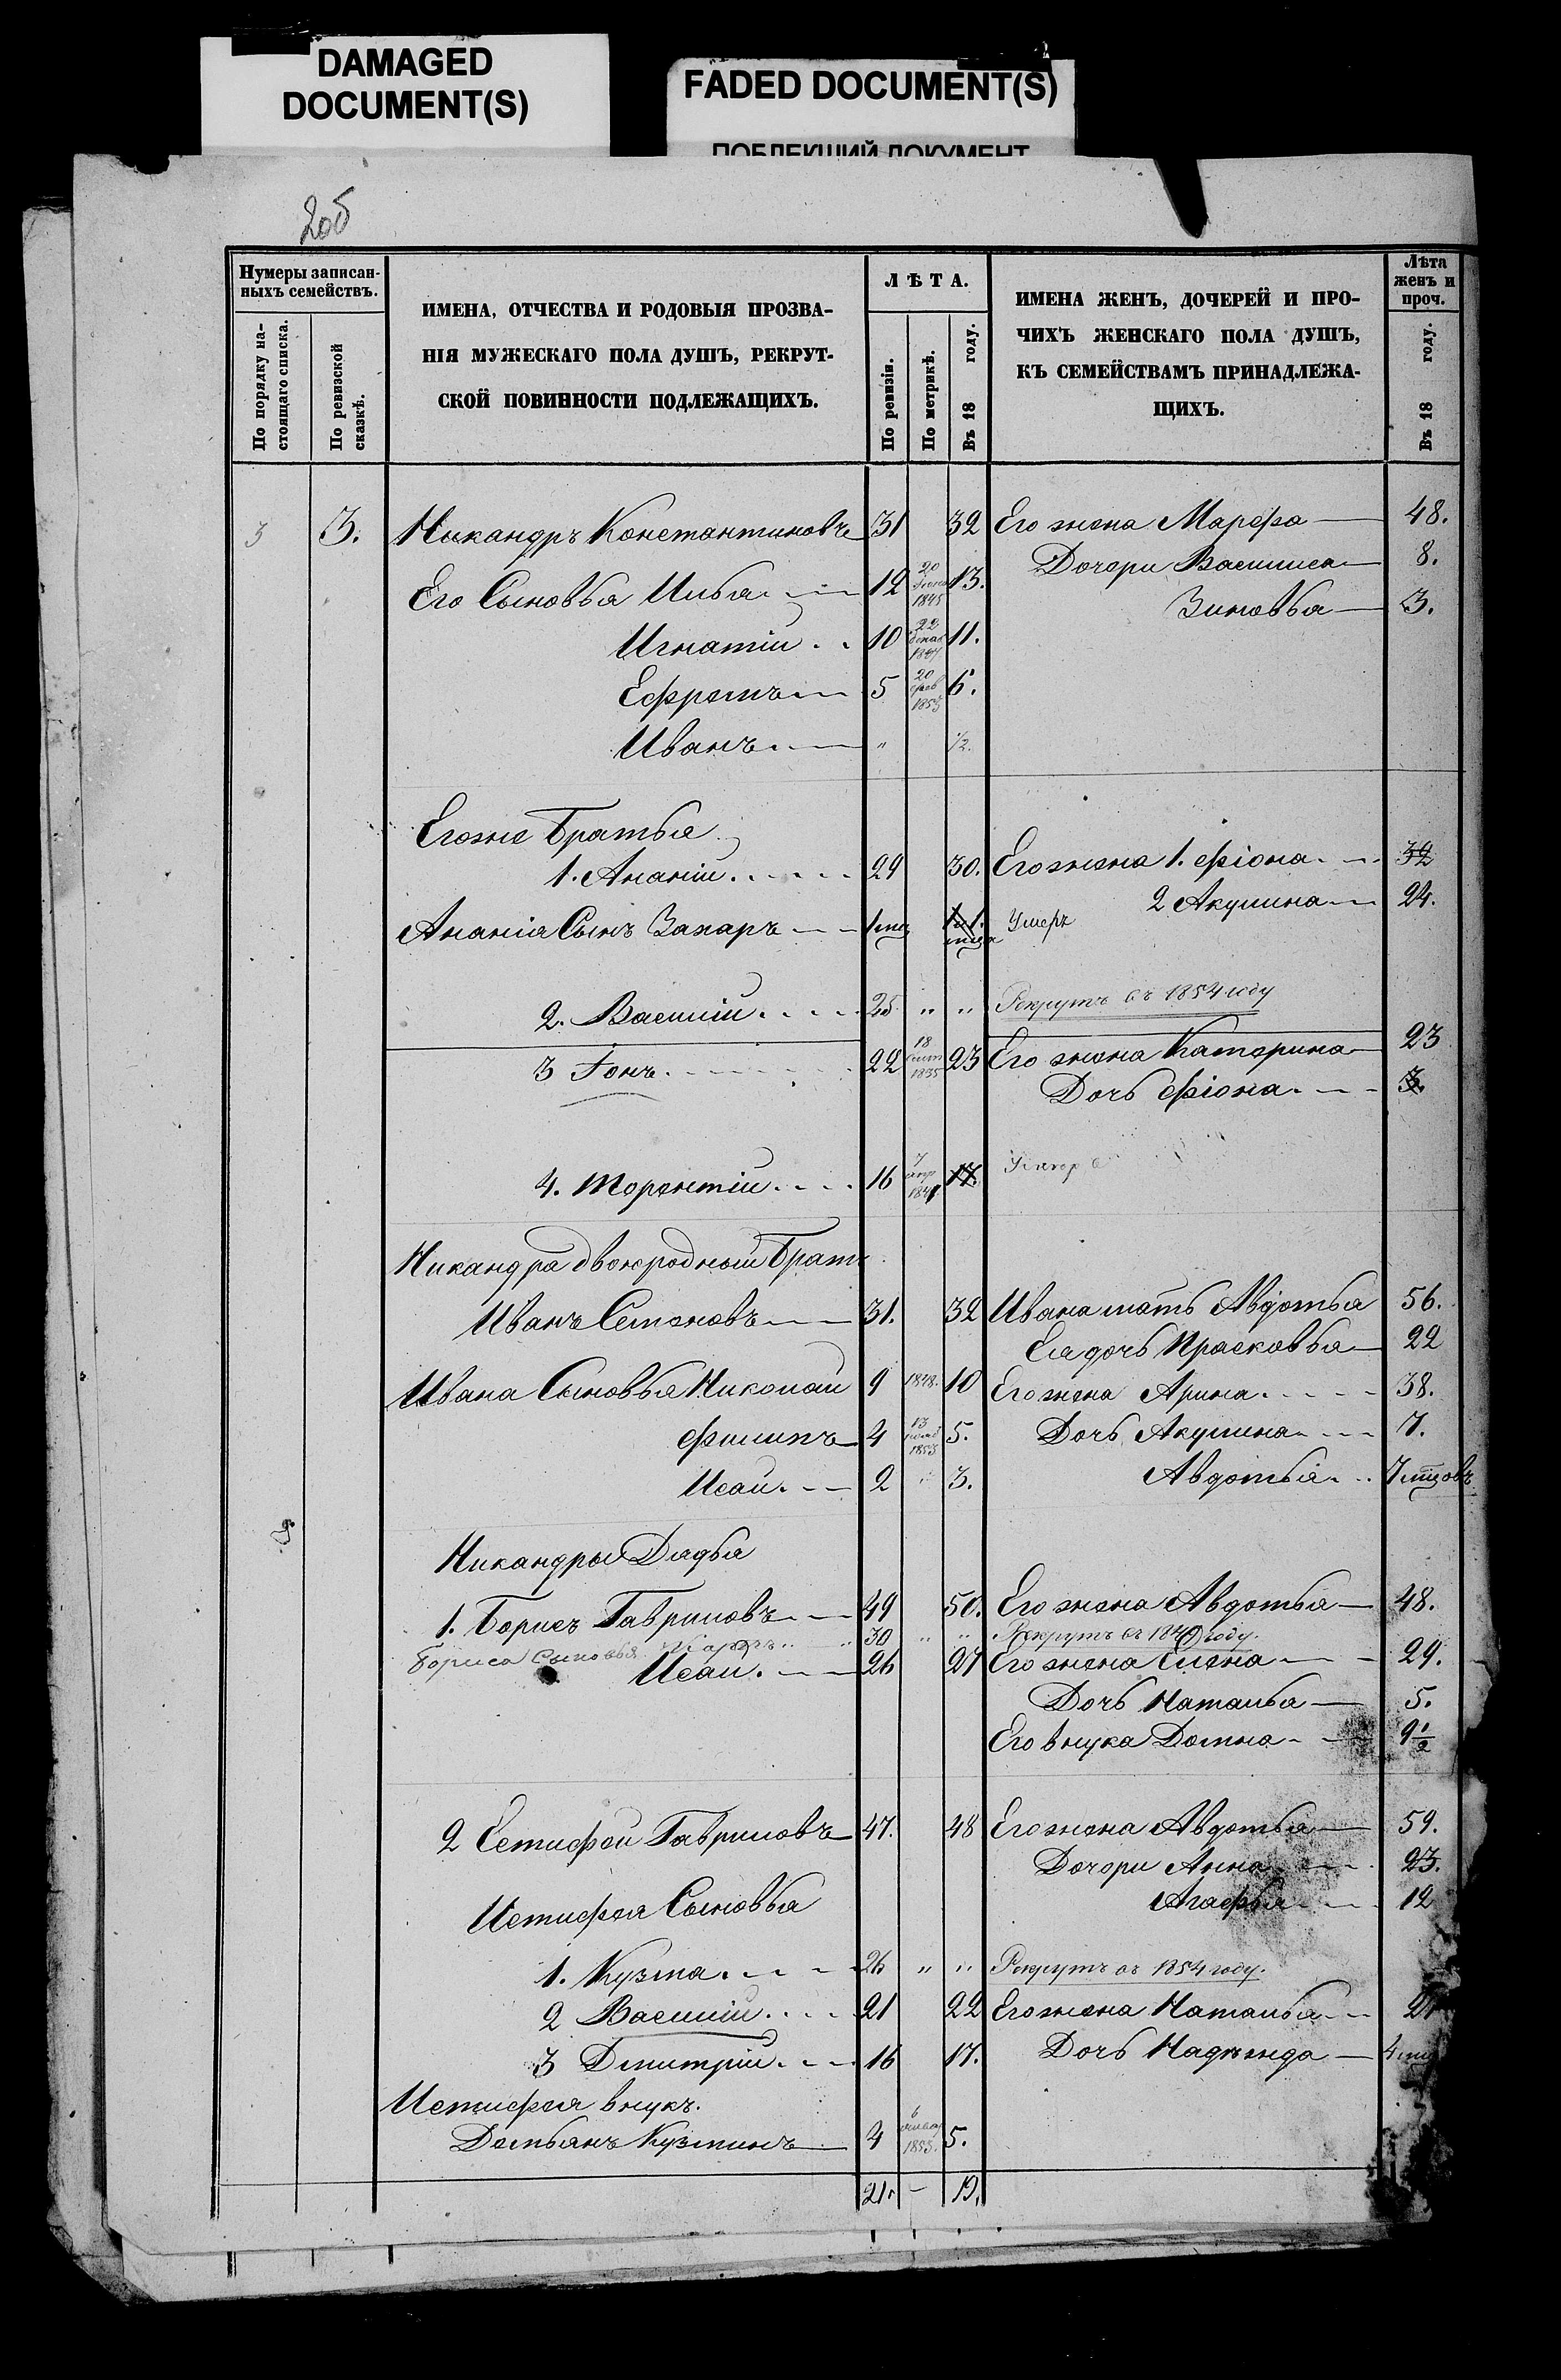 DAMAGED
DOCUMENT(S)
FADED DOCUMENT(S)
ПОБЛЕКШИЙ ДОКУМЕНТ
Нумеры записан-
ныхъ семействъ.
По порядку на-
стоящаго списка.
По ревизской
сказкѣ.
ИМЕНА, ОТЧЕСТВА И РОДОВЫЯ ПРОЗВА-
НІЯ МУЖЕСКАГО ПОЛА ДУШЪ, РЕКРУТ-
СКОЙ ПОВИННОСТИ ПОДЛЕЖАЩИХЪ.
ЛѢТА.
По ревизіи.
По метрикѣ.
Въ 18 году.
ИМЕНА ЖЕНЪ, ДОЧЕРЕЙ И ПРО-
ЧИХЪ ЖЕНСКАГО ПОЛА ДУШЪ,
КЪ СЕМЕЙСТВАМЪ ПРИНАДЛЕЖА-
ЩИХЪ.
Лѣта
женъ и
проч.
Въ 18 году.
3 3. Никандръ Константиновъ 31 32 Его жена Марфа 48.
Дочери Василиса 8.
Его Сыновья Илья 12 20 1845 13.
Зиновья 3.
Игнатій 10 22 декаб 11.
Ефремъ 5 20 фев 1853 6.
Иванъ " 1/2.
Егоже Братья
1. Ананій 29 30. Его жена 1. Фіона 32
2 Акулина 24.
Ананія Сынъ Захаръ Умеръ
2. Василій 25 " " Рекрутъ въ 1854 году
3 Іонъ 22 18 сент 1835 23 Его жена Катерина 23
Дочь Фіона 3.
4. Терентій 16 7 апр 17.
Никандра двоюродный Братъ
Иванъ Семеновъ 31. 32 Ивана мать Авдотья 56.
Ея дочь Прасковья 22
Ивана Сыновья Николай 9 1848. 10 Его жена Арина 38.
Филипъ 4 13 1853 5. Дочь Акулина 7.
Исай 2 " 3. Авдотья 7 мцовъ
Никандры Дядья
1. Борисъ Гавриловъ 49 50. Его жена Авдотья 48.
Бориса Сыновья 30 " " Рекрутъ въ году.
Исай 26 27 Его жена Елена 29.
Дочь Наталья 5.
Его внука Домна 9 1/2
2 Естифей Гавриловъ 47. 48 Его жена Авдотья 59.
Дочери Анна 23.
Агафья 12
Истифея Сыновья
1. Кузма 26 " " Рекрутъ въ 1854 году.
2 Василій 21 22 Его жена Наталья 21
3 Дмитрій 16 17. Дочь Надежда
Истифея внукъ.
Демьянъ Кузминъ 4 6 январ 1853. 5.
21. — 19.